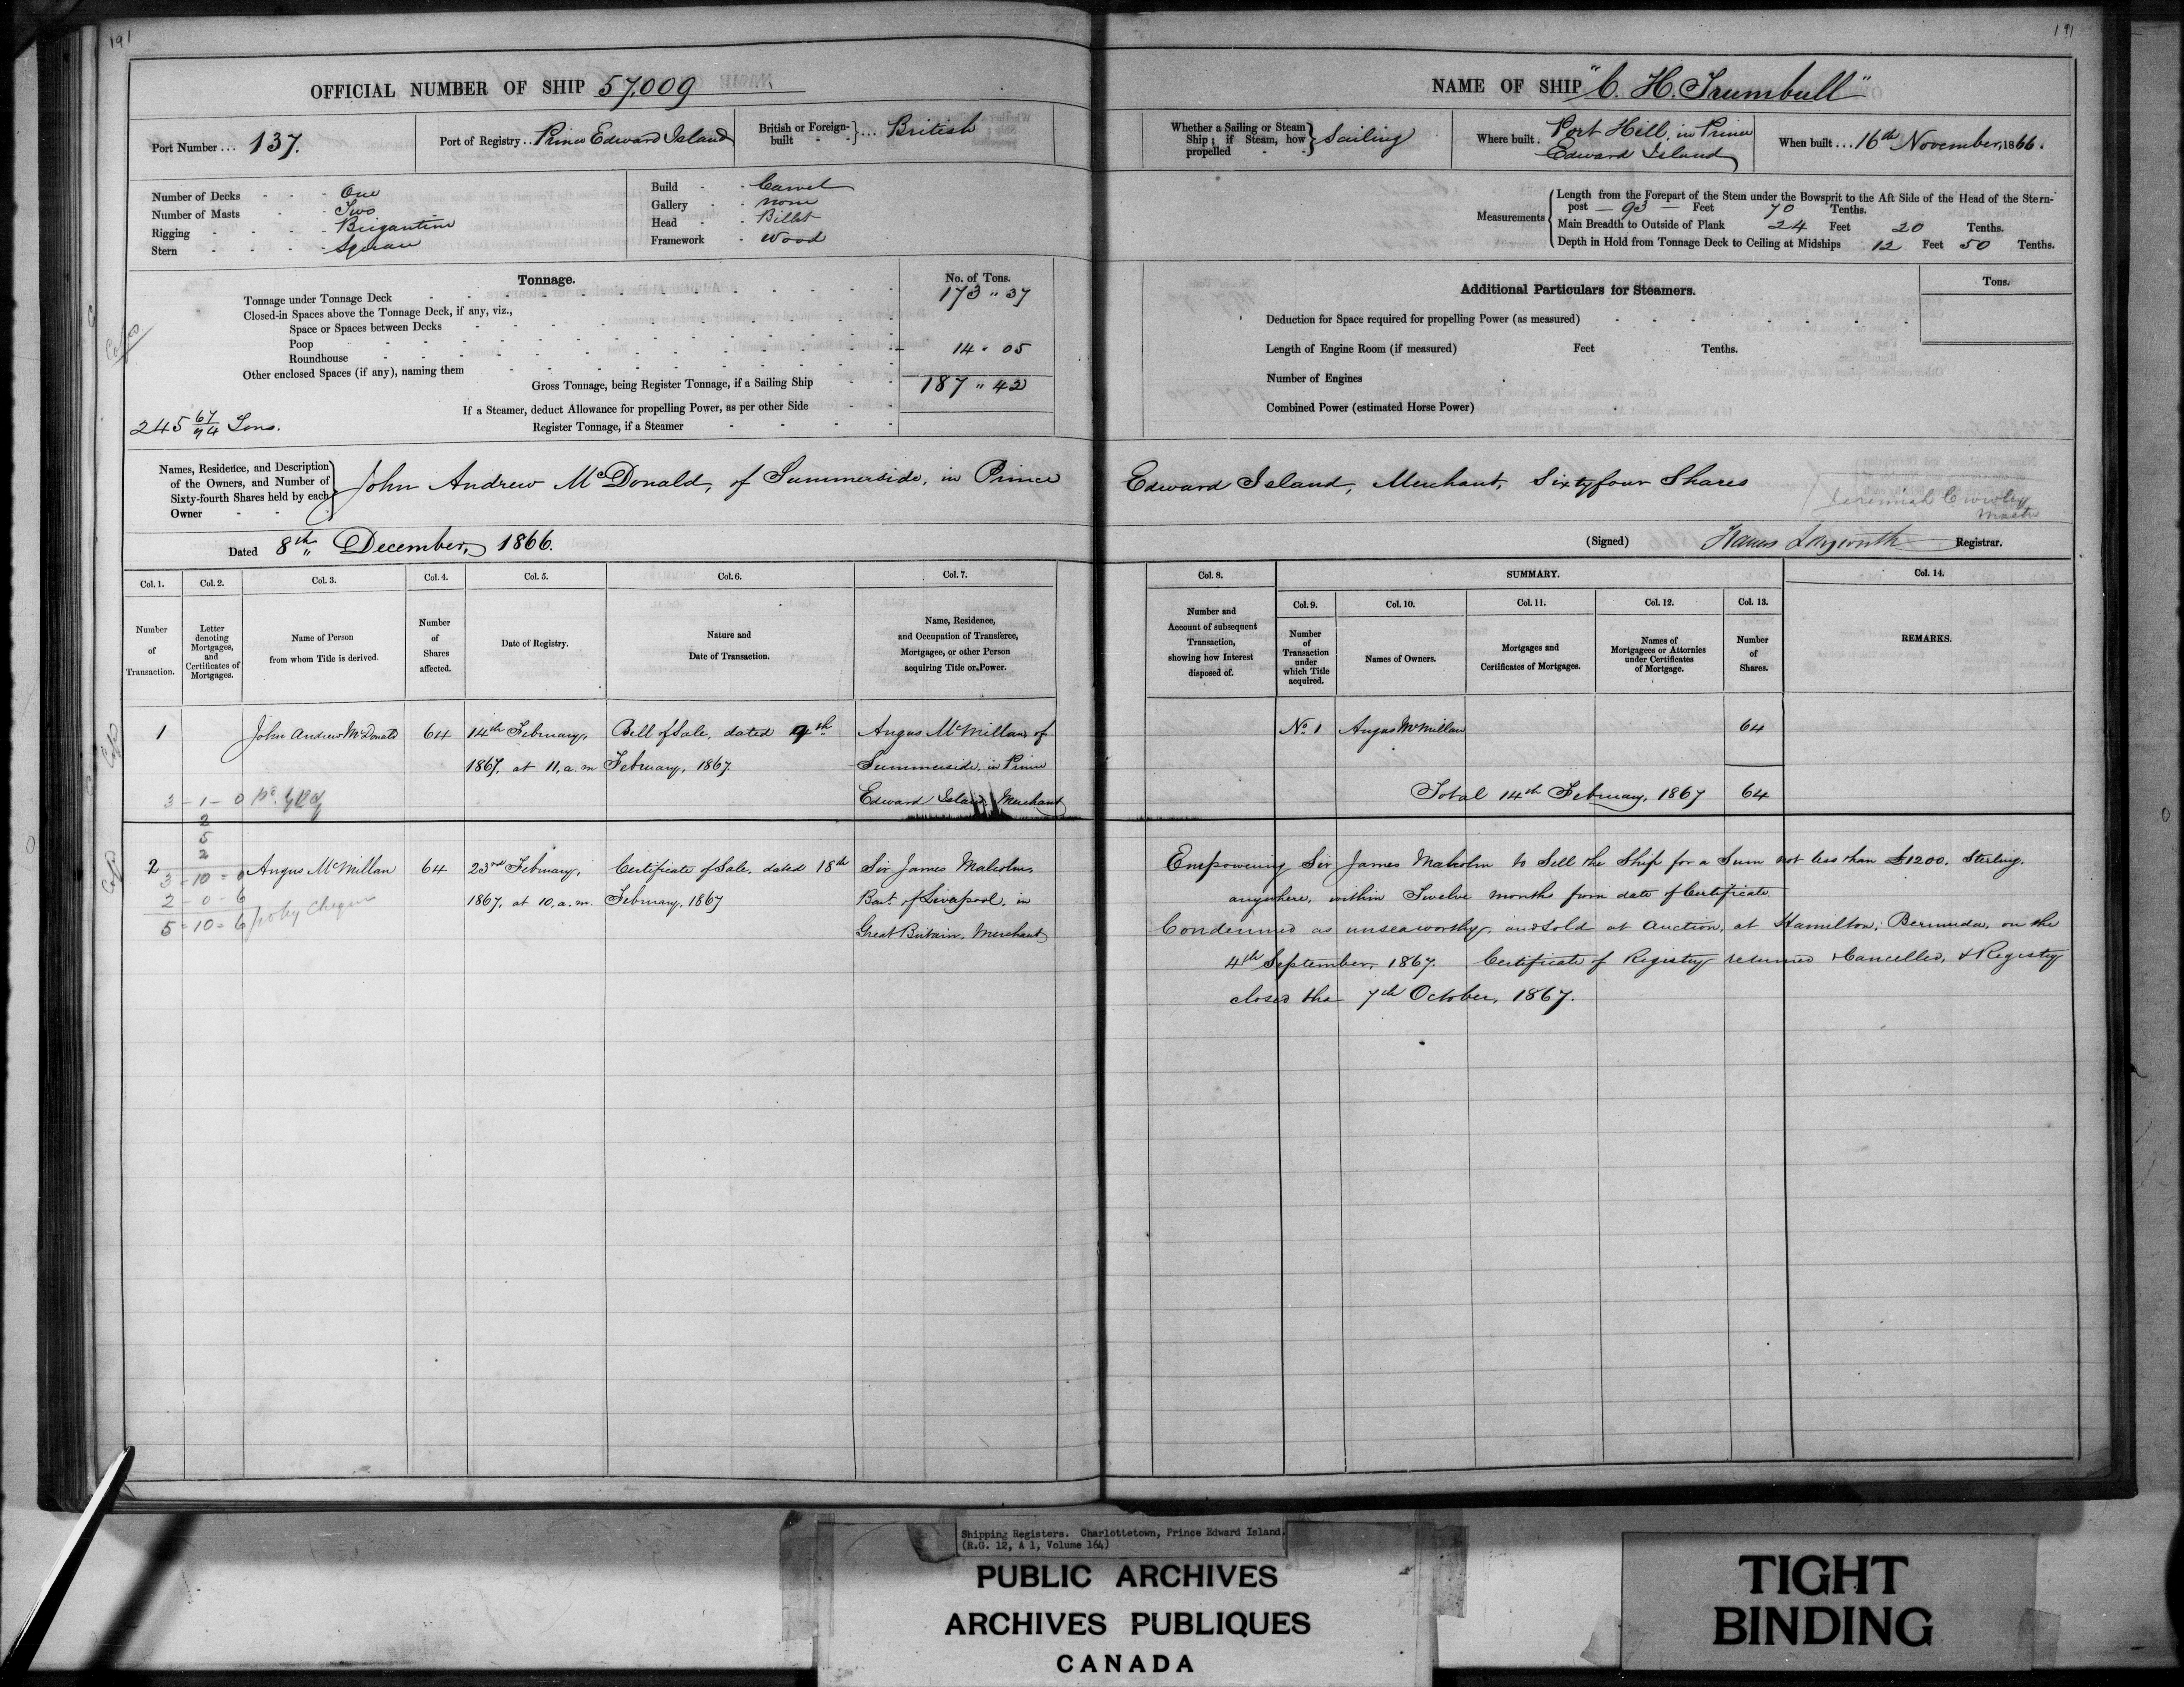 191
191
OFFICIAL NUMBER OF SHIP 57,009
Port Number... 137.
Port of Registry.. Prince Edward Island
British or Foreign-built } ... British
Number of Decks - One
Number of Masts - Two
Rigging - Brigantine
Stern - Square
Build - Carvel
Gallery - none
Head - Billet
Framework - Wood
Tonnage.
No. of Tons.
Tonnage under Tonnage Deck 173 " 37
Closed-in Spaces above the Tonnage Deck, if any, viz.,
Space or Spaces between Decks
Poop
Roundhouse 14 " 05
Other enclosed Spaces (if any), naming them
Gross Tonnage, being Register Tonnage, if a Sailing Ship 187 " 42
If a Steamer, deduct Allowance for propelling Power, as per other Side
Register Tonnage, if a Steamer
245 67/94 Tons.
NAME OF SHIP "C. H. Trumbull"
Whether a Sailing or Steam Ship; if Steam, how propelled } Sailing
Where built. Port Hill, in Prince
Edward Island
When built... 16th November, 1866.
Measurements
Length from the Forepart of the Stem under the Bowsprit to the Aft Side of the Head of the Stern-
post — 93 — Feet 70 Tenths.
Main Breadth to Outside of Plank 24 Feet 20 Tenths.
Depth in Hold from Tonnage Deck to Ceiling at Midships 12 Feet 50 Tenths.
Additional Particulars for Steamers.
Tons.
Deduction for Space required for propelling Power (as measured)
Length of Engine Room (if measured) Feet Tenths.
Number of Engines
Combined Power (estimated Horse Power)
Names, Residence, and Description
of the Owners, and Number of
Sixty-fourth Shares held by each
Owner
John Andrew McDonald, of Summerside, in Prince Edward Island, Merchant, Sixtyfour Shares
Jeremiah Crowley
Master
Dated 8th December, 1866.
(Signed) Longworth Registrar.
Col. 1. Col. 2. Col. 3. Col. 4. Col. 5. Col. 6. Col. 7.
Number of Transaction.
Letter denoting Mortgages, and Certificates of Mortgages.
Name of Person from whom Title is derived.
Number of Shares affected.
Date of Registry.
Nature and Date of Transaction.
Name, Residence, and Occupation of Transferee, Mortgagee, or other Person acquiring Title or Power.
Col. 8. SUMMARY. Col. 14.
Col. 9. Col. 10. Col. 11. Col. 12. Col. 13.
Number and Account of subsequent Transaction, showing how Interest disposed of.
Number of Transaction under which Title acquired.
Names of Owners.
Mortgages and Certificates of Mortgages.
Names of Mortgagees or Attornies under Certificates of Mortgage.
Number of Shares.
REMARKS.
1 John Andrew McDonald 64 14th February, Bill of Sale, dated 9th Angus McMillan, of
1867, at 11, a.m February, 1867. Summerside, in Prince
Edward Island Merchant
No. 1 Angus McMillan 64
Total 14th February, 1867 64
3 - 1 - 0
2
5
2
3 - 10 - 0
2 - 0 - 6
5 - 10 - 6 by Cheque
2 Angus McMillan 64 23rd February, Certificate of Sale, dated 18th Sir James Malcolm,
1867, at 10. a.m. February, 1867 Bart. of Liverpool, in
Great Britain, Merchant
Empowering Sir James Malcolm to Sell the Ship for a Sum not less than £1200. Sterling.
anywhere, within Twelve months from date of Certificate.
Condemned as unseaworthy, and sold at Auction, at Hamilton, Bermuda, on the
4th September, 1867. Certificate of Registry returned & Cancelled, & Registry
closed the 7th October, 1867.
Shipping Registers. Charlottetown, Prince Edward Island.
(R.G. 12, A 1, Volume 164)
PUBLIC ARCHIVES
ARCHIVES PUBLIQUES
CANADA
TIGHT
BINDING